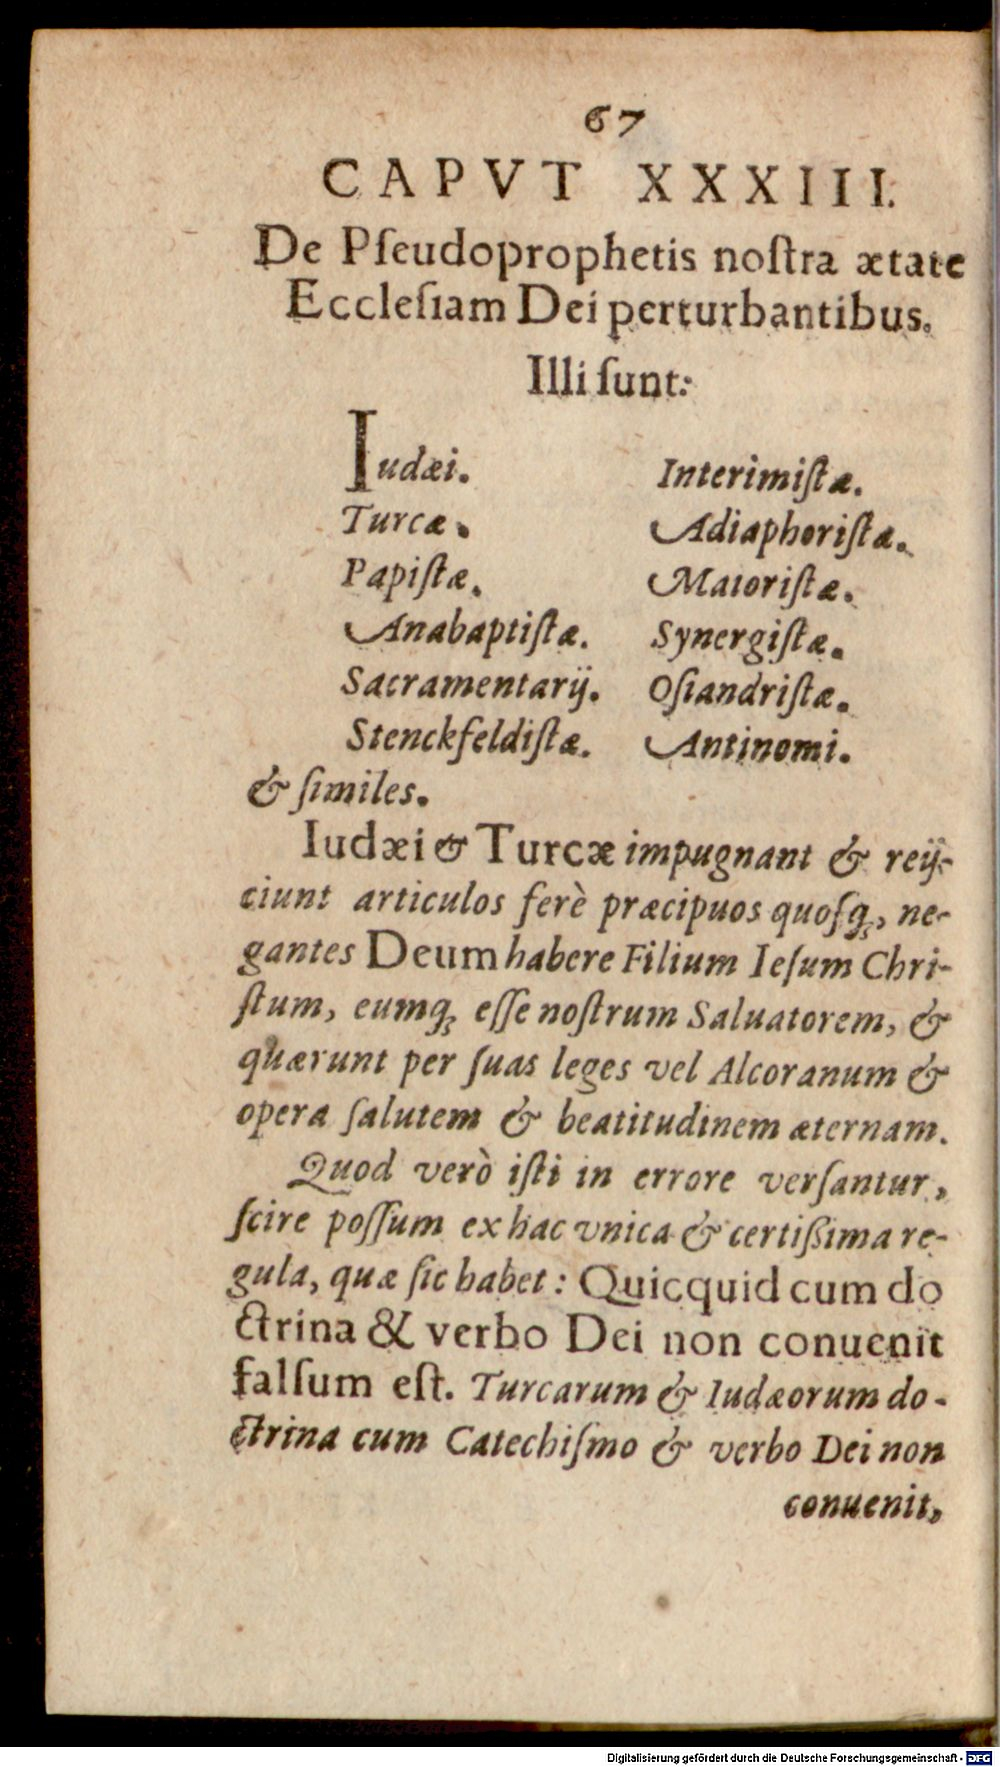 67
CAPVT XXXIII.
De Pſeudoprophetis noſtra ætate
Eccleſiam Dei perturbantibus.
Illi ſunt:
Iudæi.
Turcæ.
Papiſtæ.
Anabaptiſtæ.
Sacramentarij.
Stenckfeldiſtæ.
Interimiſtæ.
Adiaphoriſtæ.
Maioriſtæ.
Synergiſtæ.
Oſiandriſtæ.
Antinomi.
& ſimiles.
Iudæi & Turcæ impugnant & reij-
ciunt articulos ferè præcipuos quoſq́;, ne-
gantes Deum habere Filium Ieſum Chri-
ſtum, eumq́; eſſe noſtrum Saluatorem, &
quærunt per ſuas leges vel Alcoranum &
opera ſalutem & beatitudinem æternam.
Quod verò iſti in errore verſantur,
ſcire poſſum ex hac vnica & certißima re-
gula, quæ ſic habet: Quicquid cum do
ctrina & verbo Dei non conuenit
falſum eſt. Turcarum & Iudæorum do-
ctrina cum Catechiſmo & verbo Dei non
conuenit,
Digitalisierung gefördert durch die Deutsche Forschungsgemeinschaft - DFG